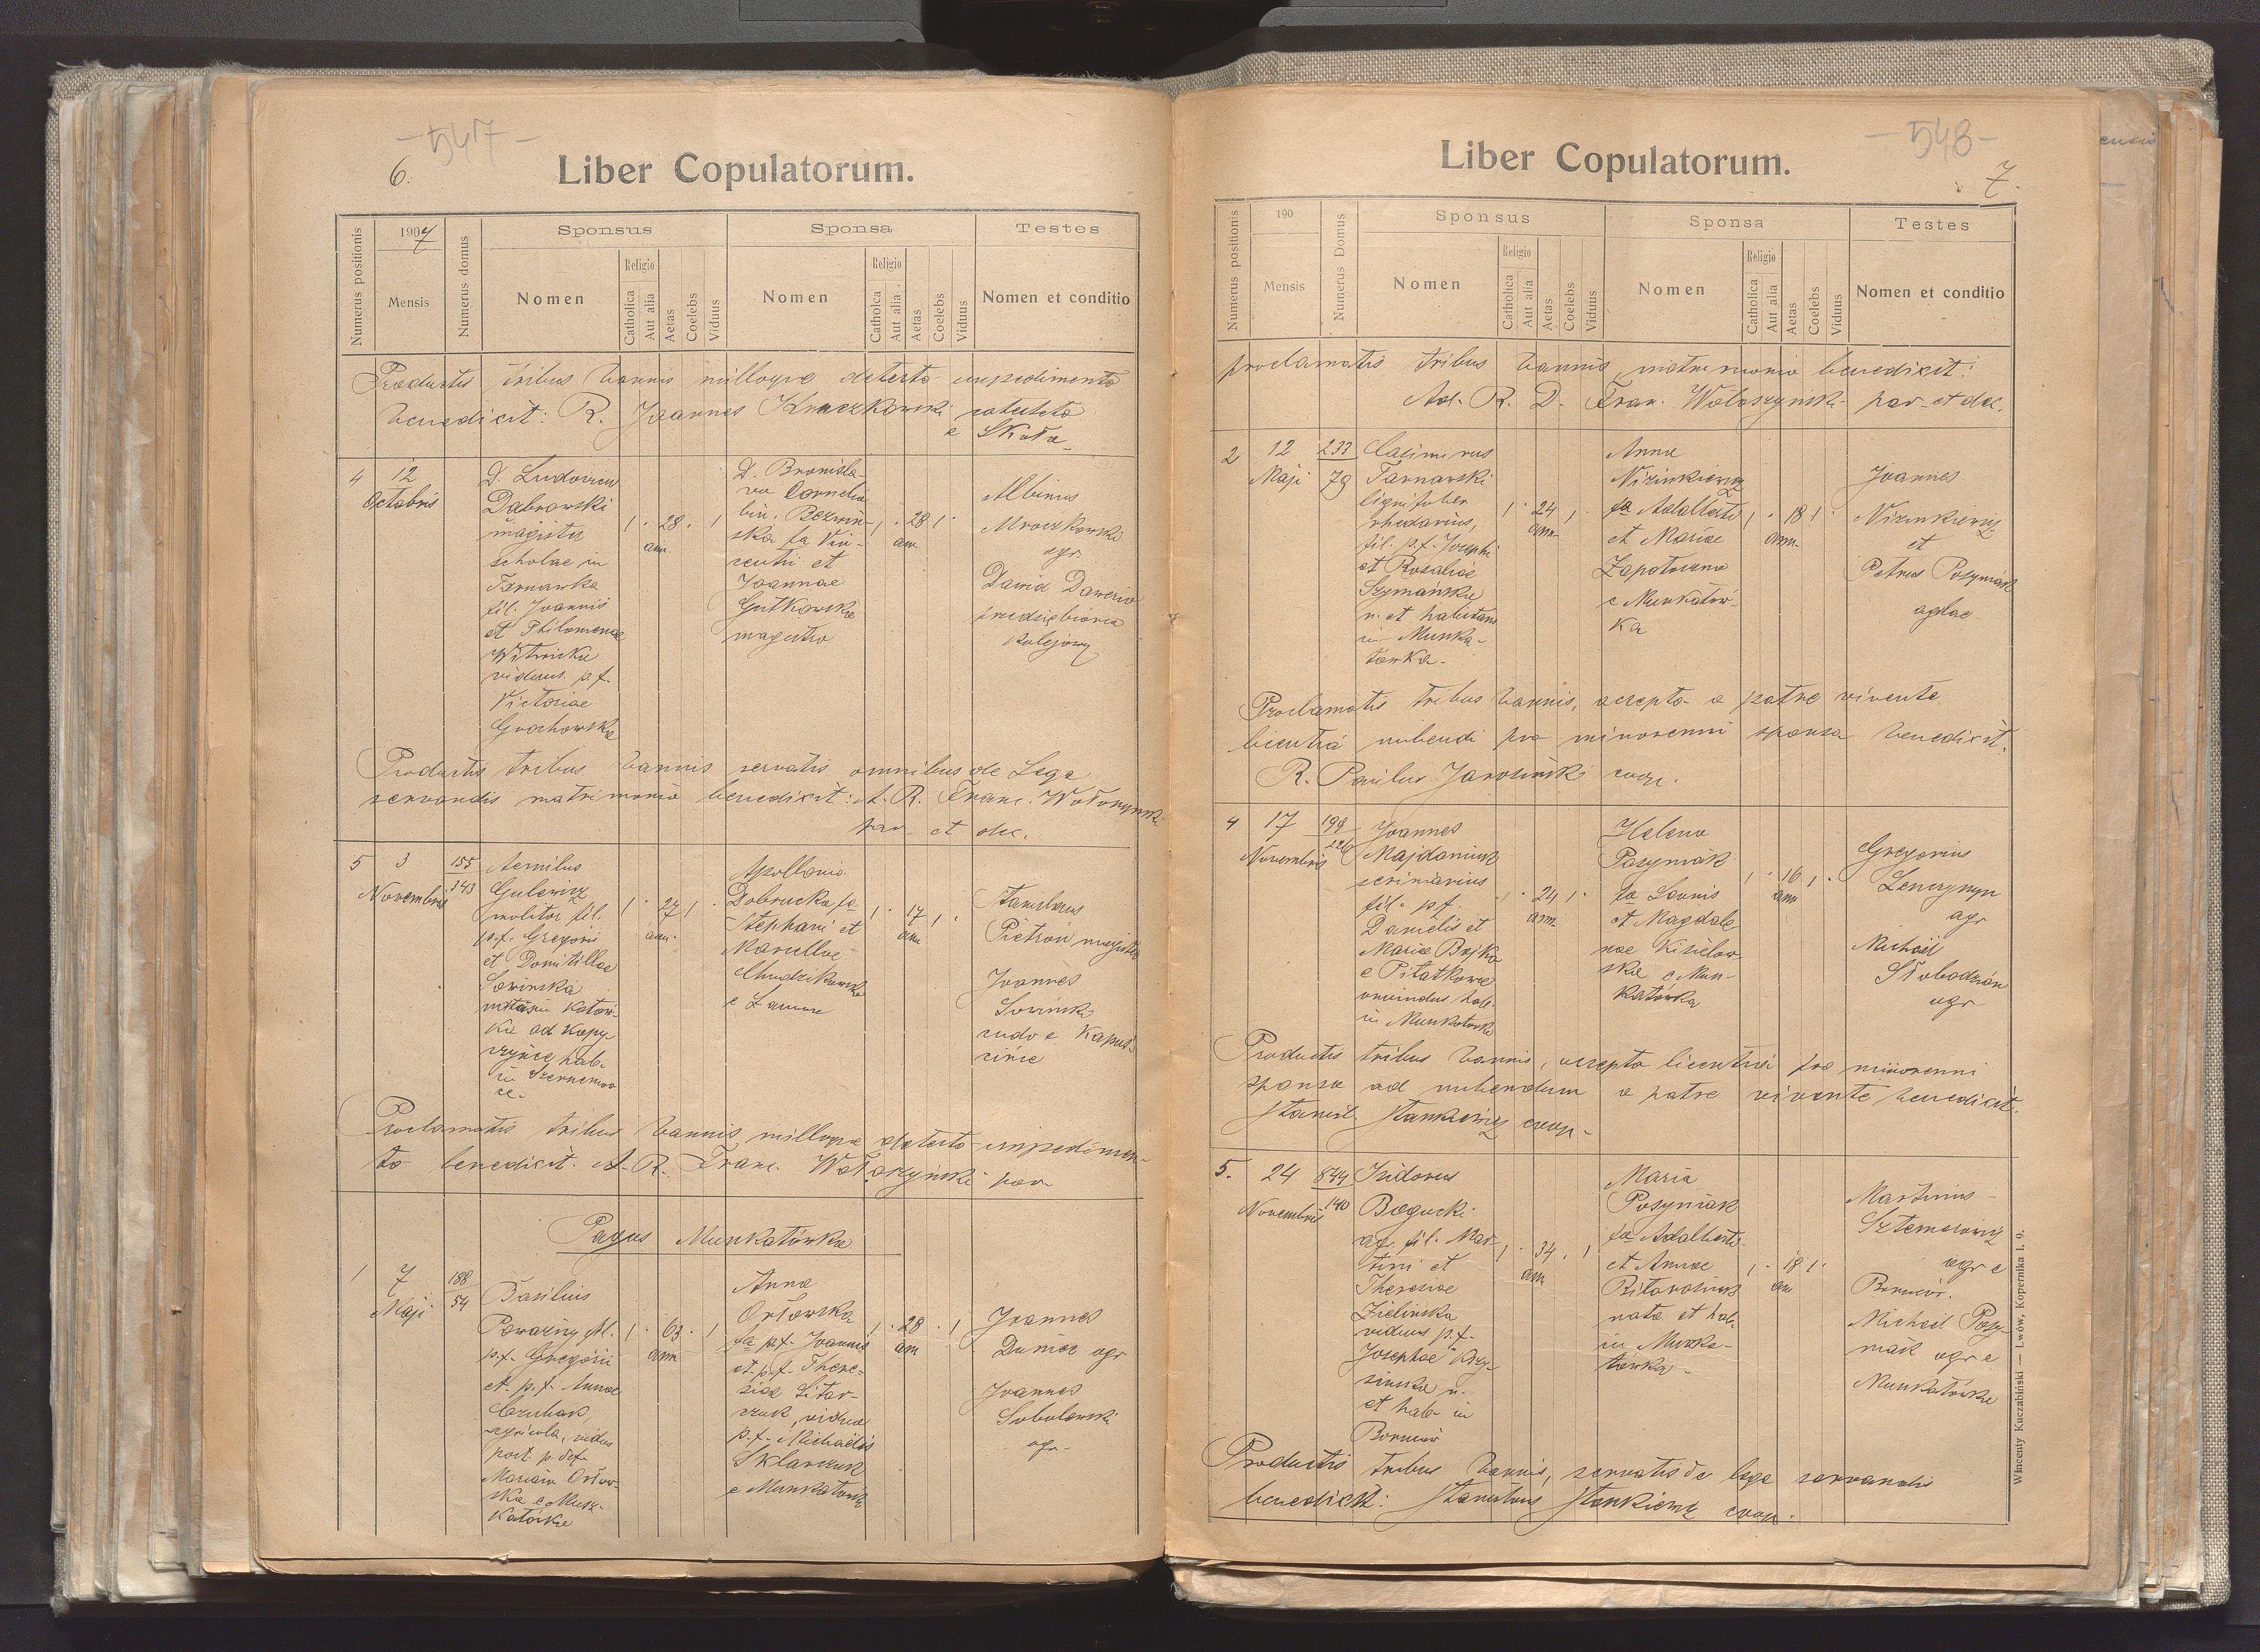 - 547 -
6.
Liber Copulatorum.
Numerus positionis
1907
Mensis
Numerus domus
Sponsus
Nomen
Religio
Catholica
Aut alia
Aetas
Coelebs
Viduus
Sponsa
Nomen
Religio
Catholca
Aut alia
Aetas
Coelebs
Viduus
Testes
Nomen et conditio
Productis tribus bannis nulloque detecto impedimento
benedixit: R. Joannes Kruczkowski
e Skała
4
12
Octobris
D. Ludovicus
Dąbrowski
magister
scholae in
Tarnawka
fil. Joannis
et Philomenae
Witwicka
viduus p.f.
Victoriae
Grochowska
1 · 28 · 1
ann.
D. Bronisla
va Cornelia
bin. Bezwiń-
ska fa Vin-
centii et
Joannae
Gutkowska
magistra
1 · 28 1 ·
ann
Albinus
Mroczkowski
agr.
David
przedsiębiorca
kolejowy
Productis tribus bannis servatis omnibus de Lege
servandis matrimonio benedixit: A. R. Franc. Wołoszyński
par et dec.
5
3
Novembris
155
343
Aemilus
Gulewicz
molitor fil.
p.f. Gregorii
et Domitillae
Sowinska
Katów-
ka ad Kopy-
czyńce hab.
in
ce.
1 · 27 1 ·
ann.
Apollonia
Dobrucka fa
Stephani et
Marcellae
Chudzikowska
e Zawne
1 · 17 1 ·
ann
Stanislaus
Pietroń magister
Joannes
Sowinski
e Kapuś-
cińce
Proclamatis tribus bannis nulloque detecto impedimen-
to benedixit A. R. Franc. Wołoszyński par
Pagus Munkatówka
1
7
Maji
188
54
Basilius
Poważny fil.
p.f. Gregorii
et p.f. Annae
Czubak,
agricola, viduus
post p. def.
Mariam Orłow-
ska e Mun-
katówka
1 · 63 · 1
ann
Anna
Orłowska
fa p.f. Joannis
et p.f. There-
siae Litar-
czuk, vidua
p.f. Michaelis
Sklarczuk
e Munkatówka
1 · 28 · 1
ann
Joannes
Duniec agr
Joannes
Sobolewski
agr.
- 548 -
7.
Liber Copulatorum.
Numerus positionis
190
Mensis
Numerus Domus
Sponsus
Nomen
Religio
Catholica
Aut alia
Aetas
Coelebs
Viduus
Sponsa
Nomen
Religio
Catholica
Aut alia
Aetas
Coelebs
Viduus
Testes
Nomen et conditio
proclamatis tribus bannis, matrimonio benedixit:
Ad. R. D. Fran. Wołoszyński par et dec.
2
12
Maji
233
79
Casimirus
Tarnawski
lignifaber
rhedarius,
fil. p.f. Josephi
et Rosaliae
Szymańska
n. et habitans
in Munka-
tówka.
1 · 24 1 ·
ann
Anna
Nizinkiewicz
fa Adalberti
et Mariae
Zapotoczna
e Munkatów-
ka
1 · 18 1 ·
ann.
Joannes
Nizinkiewicz
et
Petrus Pozyniak
agolae
Proclamatis tribus bannis, accepta a patre vivente
licentia nubendi pro minorenni sponsa benedixit.
R. Paulus Jarosinski coop.
4
17
Novembris
199
226
Joannes
Majdaniuk
scriniarius
fil. p.f.
Danielis et
Mariae Bojko
e Pilatkowce
oriundus hab.
in Munkatówka
1 · 24 1 ·
ann.
Helena
Pozyniak
fa Leonis
et Magdale
nae Kisielow
ska e Mun-
katówka
1 · 16 1 ·
ann
Gregorius
agr
Michael
Słobodzian
agr
Productis tribus bannis, accepta licentia pro minorenni
sponsa ad nubendum a patre vivente benedixit.
Stanisl. Stankiewicz coop.
5.
24
Novembris
844
140
Isidorus
Bogucki
ag. fil. Mar-
tini et
Theresiae
Zielińska
viduus p.f.
Josephae
n.
et hab. in
Borszczów
1 · 34 · 1
ann
Maria
Pozyniak
fa Adalberti
et Annae
nata et hab.
in Munka-
tówka.
1 · 18 1 ·
ann
Martinus
agr e
Michael Pozy-
niak agr e
Munkatówka
Productis tribus bannis, servatis de lege servandis
benedixit: Stanislaus Stankiewicz coop.
Wincenty Kuczabiński — Lwów, Kopernika l. 9.